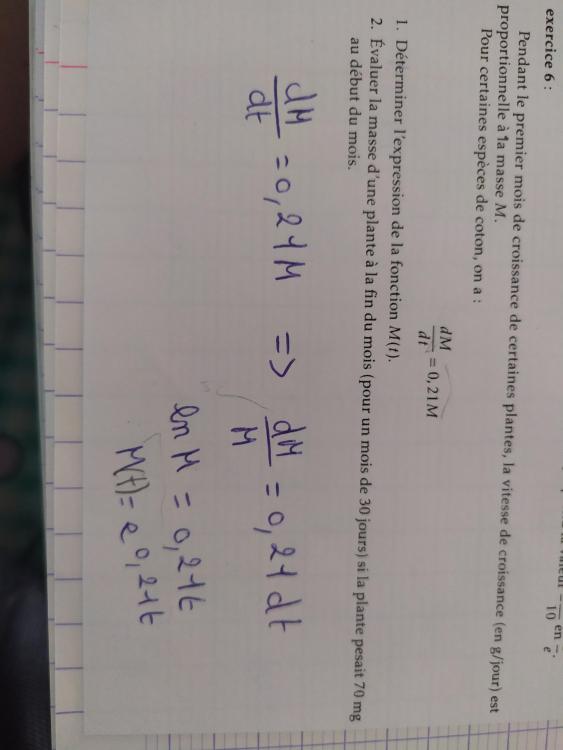 10 en e.
exercice 6 :
Pendant le premier mois de croissance de certaines plantes, la vitesse de croissance (en g/jour) est
proportionnelle à la masse M.
Pour certaines espèces de coton, on a :
dM/dt = 0,21M
1. Déterminer l'expression de la fonction M(t).
2. Évaluer la masse d'une plante à la fin du mois (pour un mois de 30 jours) si la plante pesait 70 mg
au début du mois.
dM/dt = 0,21M => dM/M = 0,21dt
ln M = 0,21t
M(t) = e^0,21t